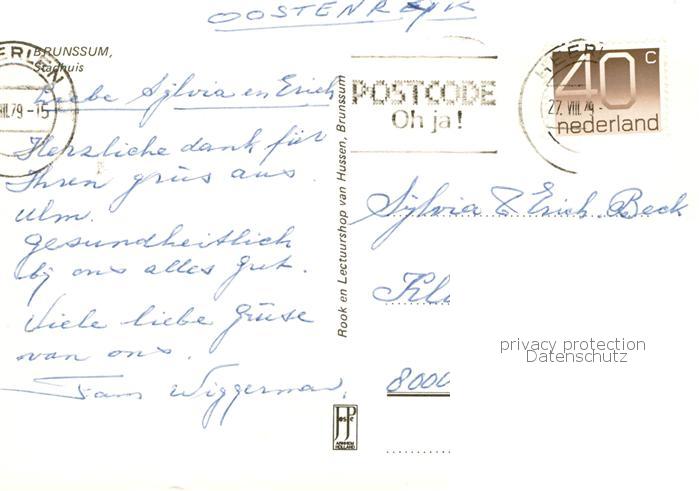 OOSTENRIJK
BRUNSSUM,
Stadhuis
Liebe Sylvia en Erich
Herzliche dank für
Ihren grüs aus
Ulm.
gesundheitlich
bij ons alles gut.
Viele liebe Grüse
van ons.
Fam Wiggerman,
HEERLEN
VIII.79 - 15
POSTCODE
Oh ja!
HEERL
27. VIII. 79 -
40 c
nederland
Rook en Lectuurshop van Hussen, Brunssum
Sylvia & Erich Beck
8000
privacy protection
Datenschutz
ARNHEM
HOLLAND